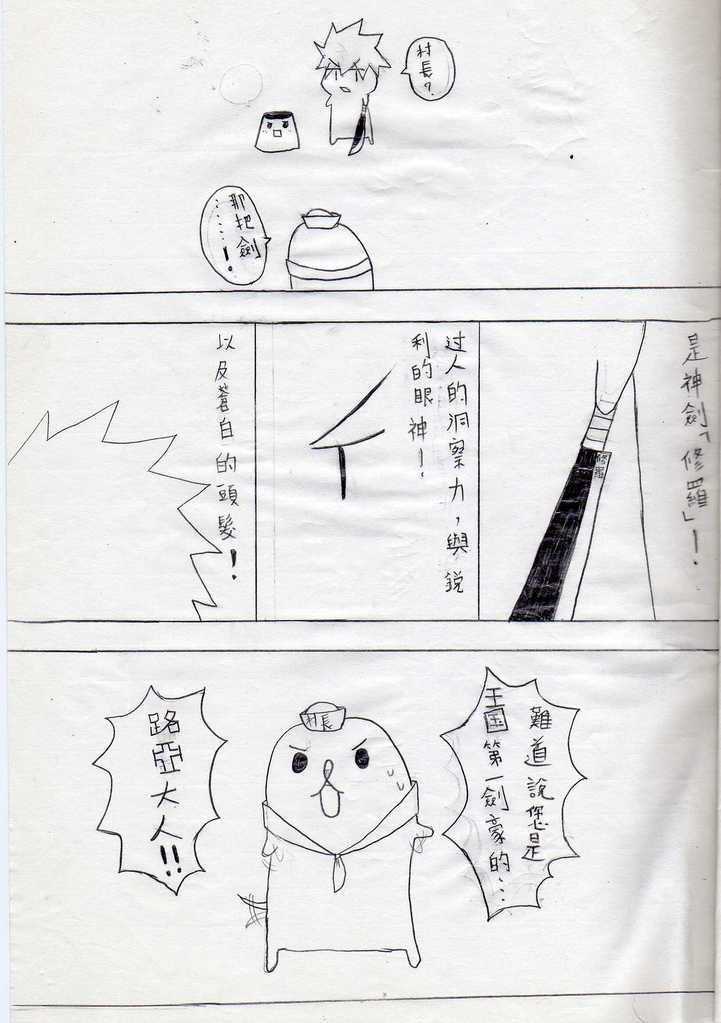 村長?
那把劍
……!
是神劍「修羅」!
修羅
过人的洞察力,與銳
利的眼神!
以及蒼白的頭髮!
難道說您是
王国第一劍豪的…
村長
路亞大人!!